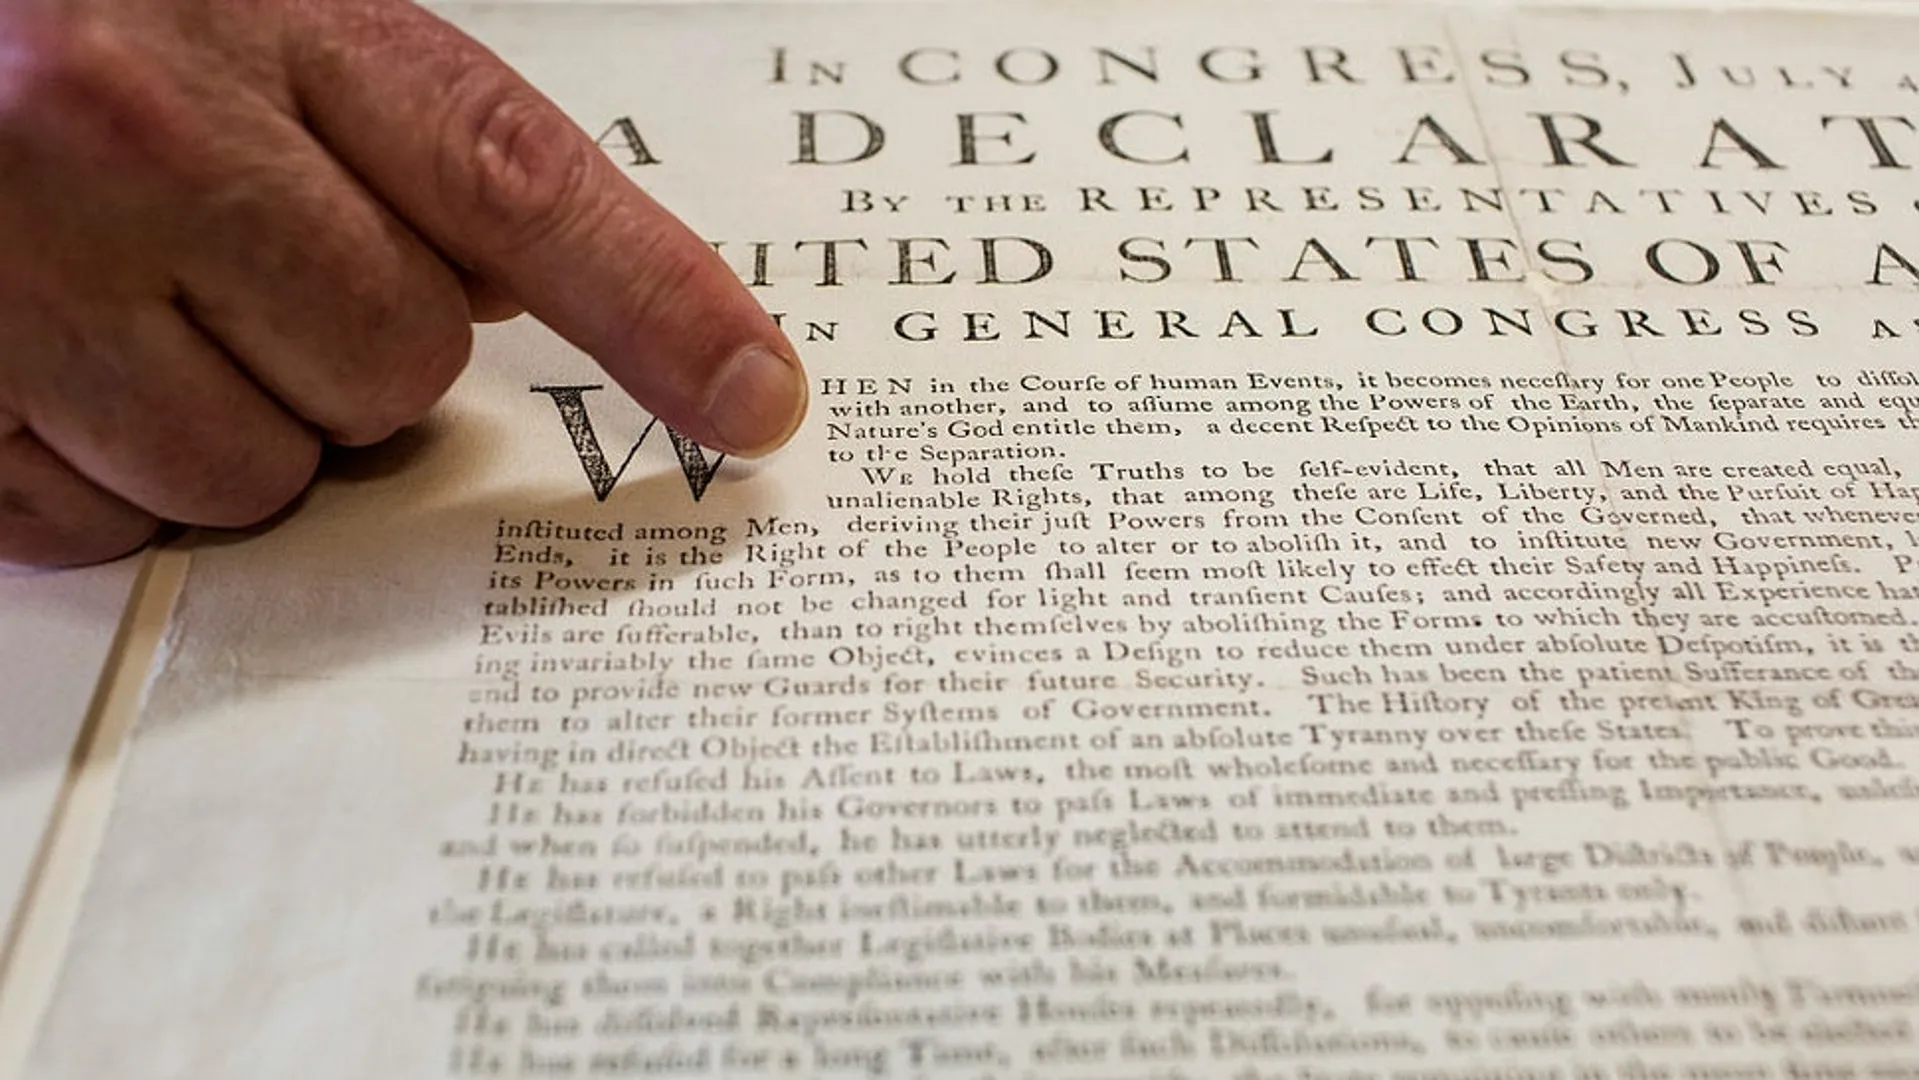 In CONGRESS, July 4
A DECLARAT
By the REPRESENTATIVES
ITED STATES OF A
In GENERAL CONGRESS
WHEN in the Courſe of human Events, it becomes neceſſary for one People to diſſol
with another, and to aſſume among the Powers of the Earth, the ſeparate and equ
Nature's God entitle them, a decent Reſpect to the Opinions of Mankind requires th
to the Separation.
We hold theſe Truths to be ſelf-evident, that all Men are created equal,
unalienable Rights, that among theſe are Life, Liberty, and the Purſuit of Hap
inſtituted among Men, deriving their juſt Powers from the Conſent of the Governed, that whenever
Ends, it is the Right of the People to alter or to aboliſh it, and to inſtitute new Government, l
its Powers in ſuch Form, as to them ſhall ſeem moſt likely to effect their Safety and Happineſs. P
tabliſhed ſhould not be changed for light and tranſient Cauſes; and accordingly all Experience hat
Evils are ſufferable, than to right themſelves by aboliſhing the Forms to which they are accuſtomed.
ing invariably the ſame Object, evinces a Deſign to reduce them under abſolute Deſpotiſm, it is th
and to provide new Guards for their future Security. Such has been the patient Sufferance of th
them to alter their former Syſtems of Government. The Hiſtory of the preſent King of Grea
having in direct Object the Eſtabliſhment of an abſolute Tyranny over theſe States. To prove this
He has refuſed his Aſſent to Laws, the moſt wholeſome and neceſſary for the public Good.
He has forbidden his Governors to paſs Laws of immediate and preſſing Importance, unleſs
and when ſo ſuſpended, he has utterly neglected to attend to them.
He has refuſed to paſs other Laws for the Accommodation of large Diſtricts of People,
the Legiſlature, a Right ineſtimable to them, and formidable to Tyrants only.
He has called together Legiſlative Bodies at Places unuſual, uncomfortable, and diſtant
fatiguing them into Compliance with his Meaſures.
He has diſſolved Repreſentative Houſes repeatedly, for oppoſing with manly Firmneſs
He has refuſed for a long Time, after ſuch Diſſolutions, to cauſe others to be elected